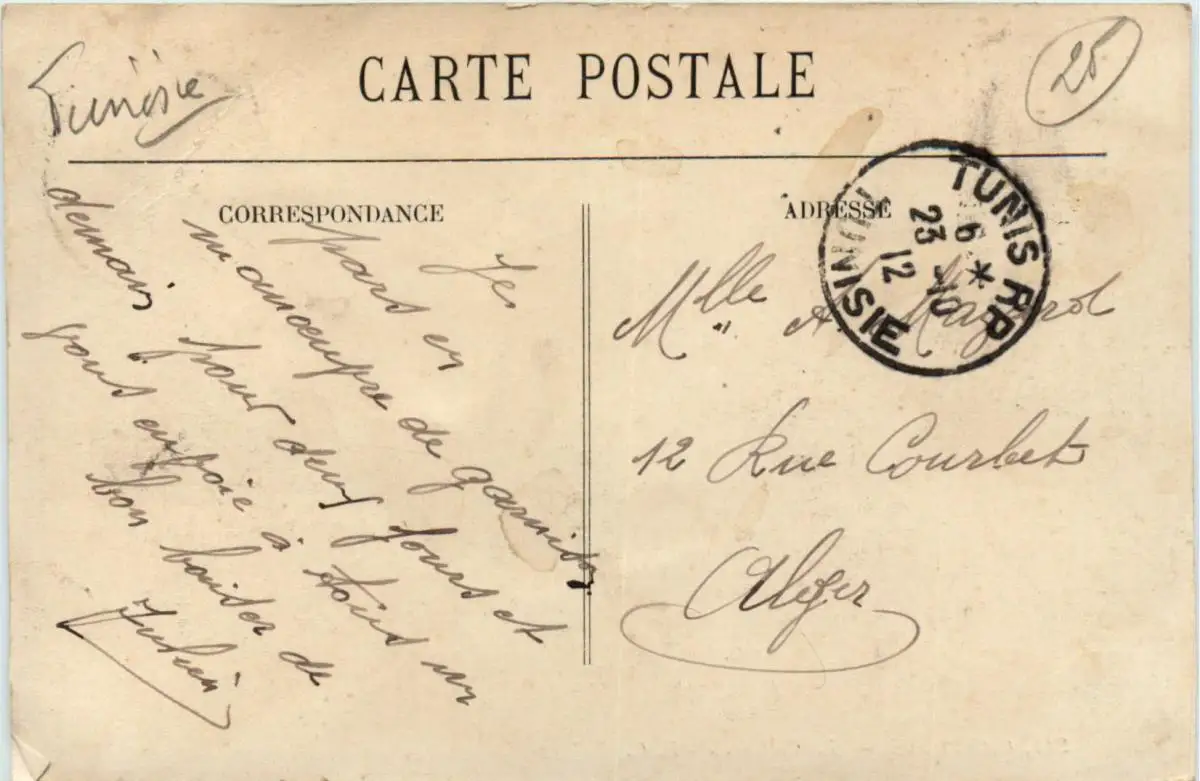 Tunisie
CARTE POSTALE
25
CORRESPONDANCE
Je
pars en
manoeuvre de garnison
demain pour deux jours et
vous envoie à tous un
bon baiser de
Julien
ADRESSE
TUNIS RP
6 *
23 -10
12
TUNISIE
Mlle A.
12 Rue Courbet
Alger